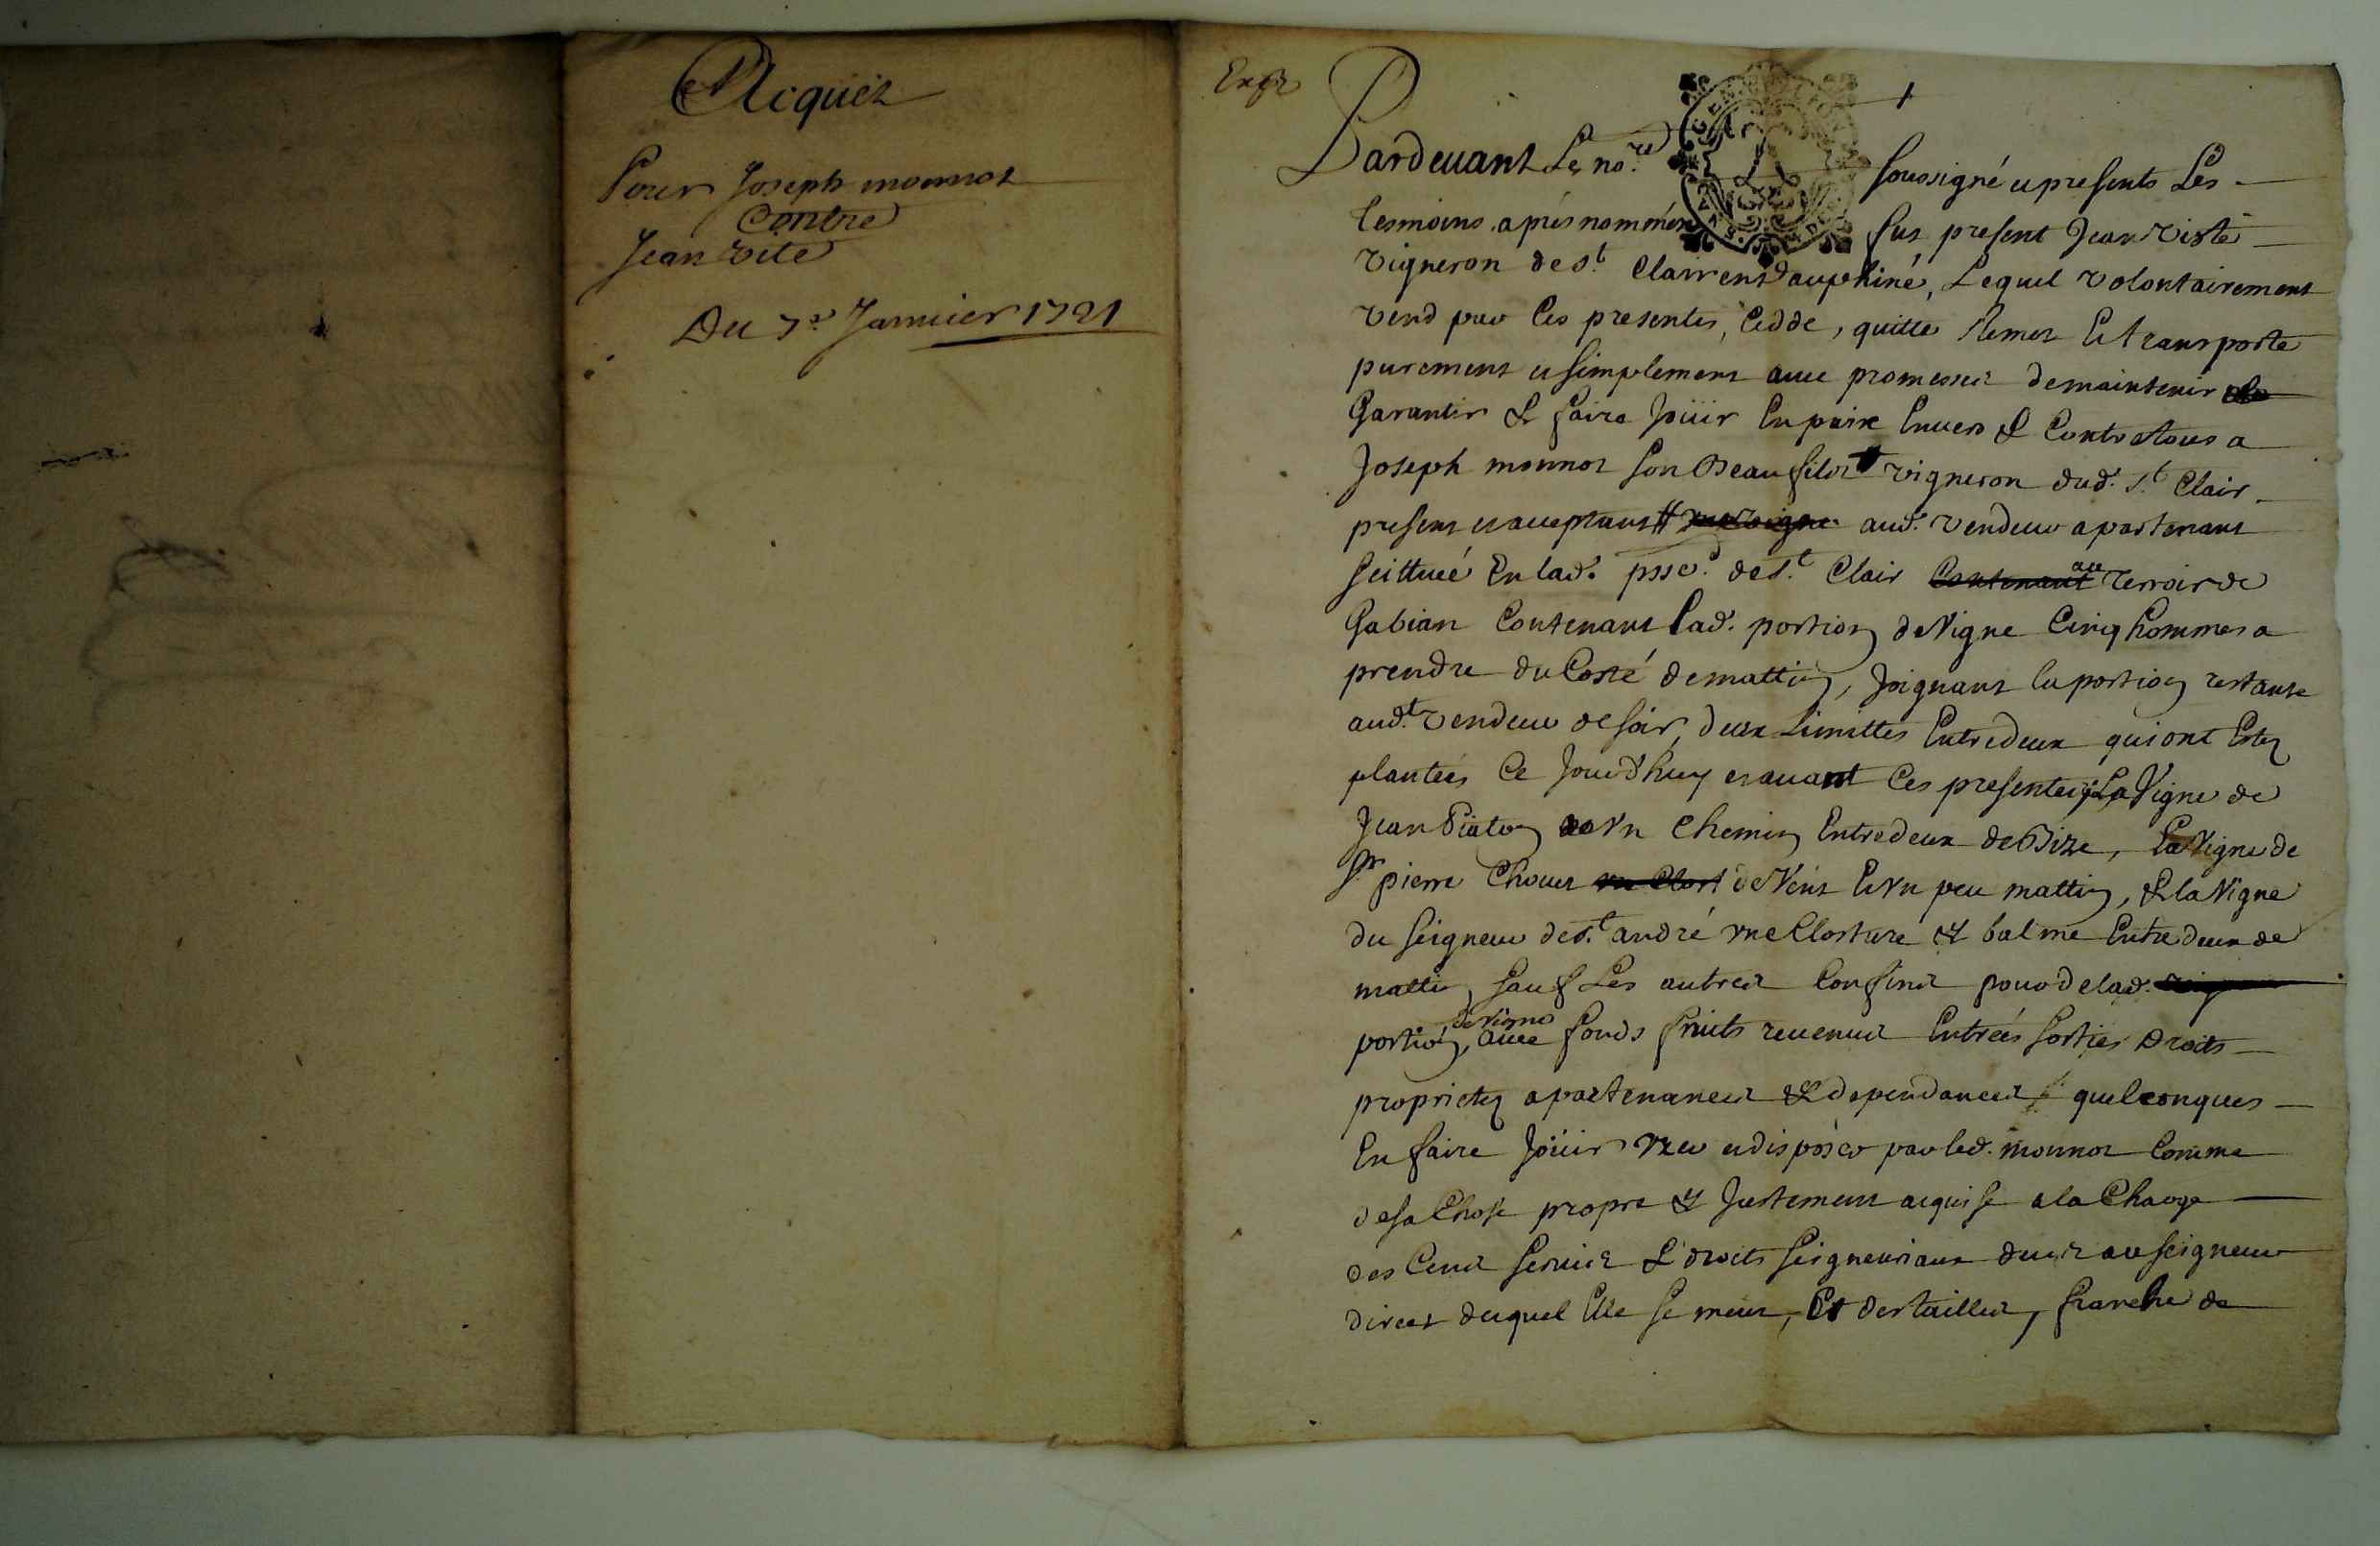 Acquiet
Pour Joseph monnot
Contre
Jean vite
Du 7e Januier 1721
Exp
Pardeuant Le nore soussigné et presents Les
tesmoins apres nommés fut present Jean viste
vigneron de st. Clair en dauphiné, Lequel volontairement
vend par ces presentes, cedde, quitte remet Et transporte
purement et simplement auec promesses de maintenir
Garantir & faire Joüir En paix Enuers & Contre tous a
Joseph monnot son Beau fils vigneron dud. st. Clair
present et acceptant # aud. vendeur apartenant
scittuée En lad. psse. de st. Clair Contenant au terroir de
Gabian Contenant lad. portion de Vigne Cinq hommes a
prendre du Costé de mattin, Joignant la portion restante
audt. vendeur de soir, deux Limittes Entredeux qui ont Estez
plantées Ce Jourd'huy et auant Ces presentes, La Vigne de
Jean Piaton Vn Chemin Entredeux de Bize, La Vigne de
Sr. pierre de Vent Et Vn peu mattin, & la Vigne
du seigneur de st. andré vne Closture & balme Entredeux de
mattin, sauf Les autres Confins de lad.
portion, de vigne auec fonds fruits reuenus Entrées sorties Droits
proprietez apartenances & dependances quelconques
En faire Joüir vzer et disposer par led. monnot Comme
de sa Chose propre & Justement acquise a la Charge
des Cens seruis & droits seigneuriaux deus au seigneur
direct duquel Elle se meut, Et des tailles, franche de